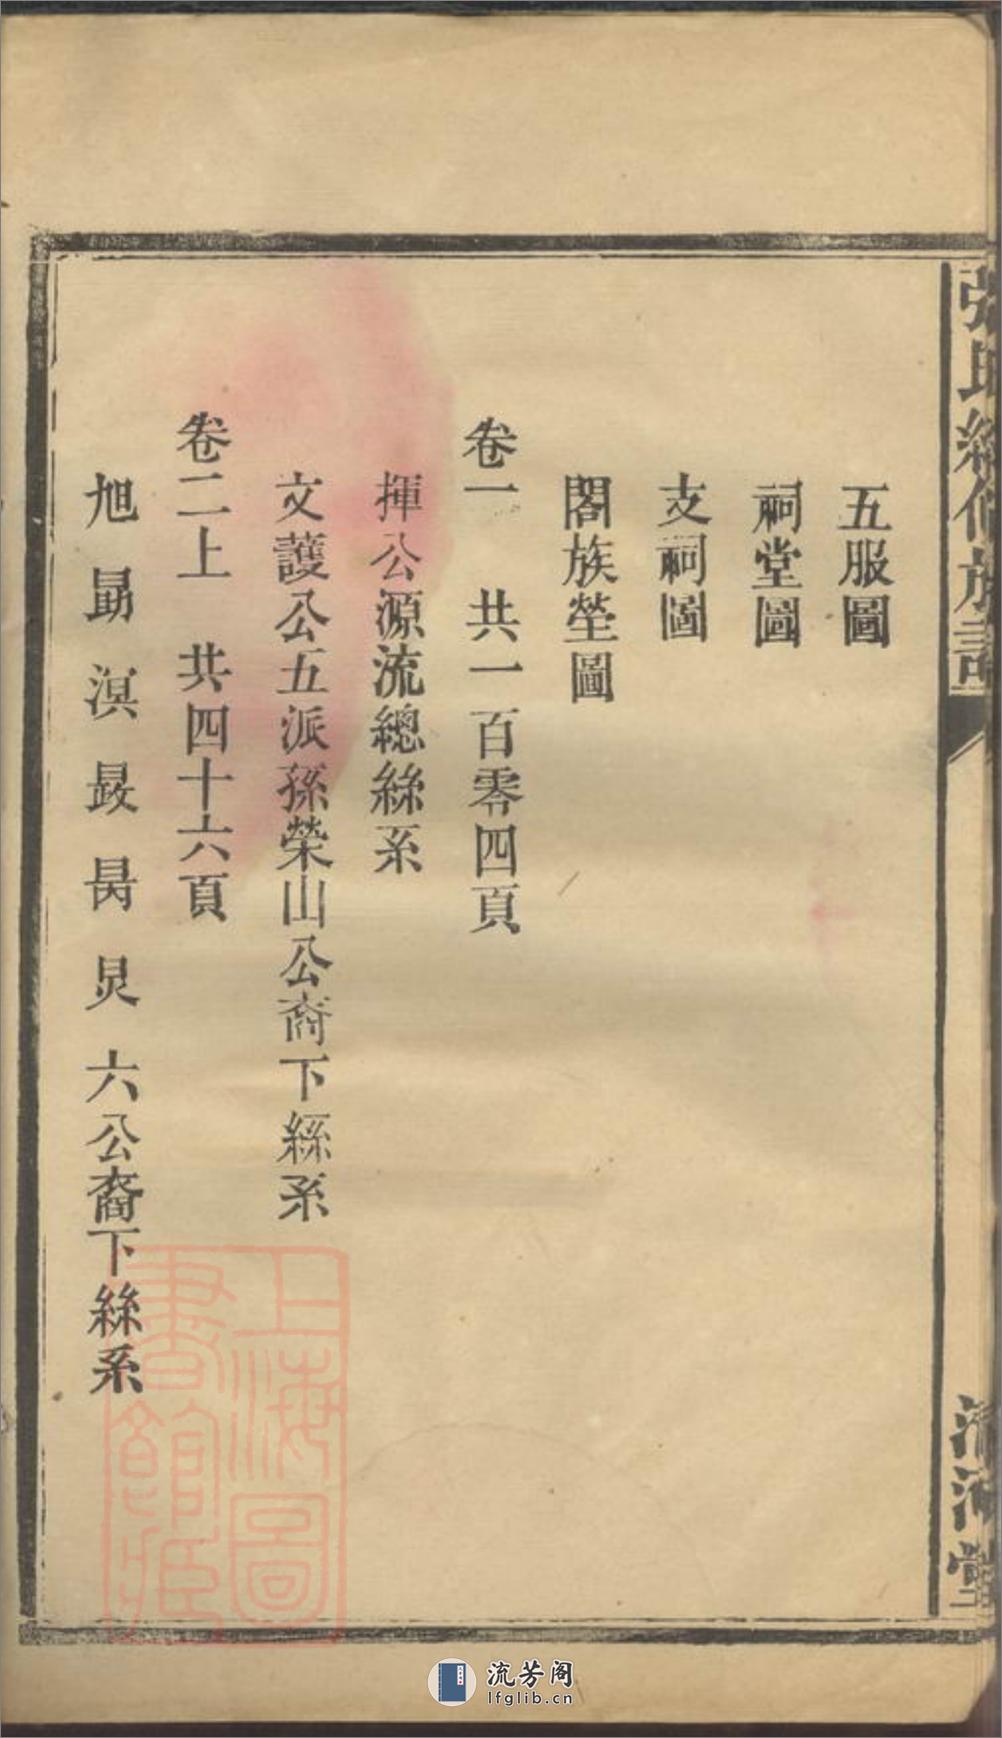 張氏續修族譜
清河堂
五服圖
祠堂圖
支祠圖
闔族塋圖
卷一 共一百零四頁
揮公源流總絲系
文護公五派孫榮山公裔下絲系
卷二上 共四十六頁
旭 勗 溟 晸 昺 炅 六公裔下絲系
上海圖
書館藏
流芳阁
lfglib.cn